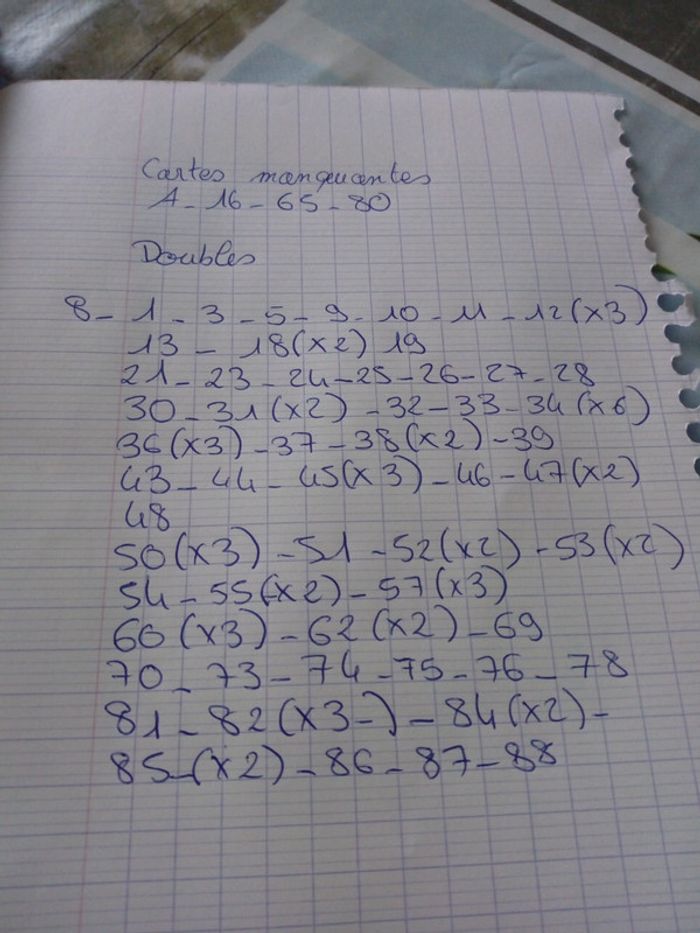 Cartes manquantes
1 - 16 - 65 - 80
Doubles
8 - 1 - 3 - 5 - 9 - 10 - 11 - 12 (x3)
13 - 18 (x2) 19
21 - 23 - 24 - 25 - 26 - 27 - 28
30 - 31 (x2) - 32 - 33 - 34 (x6)
36 (x3) - 37 - 38 (x2) - 39
43 - 44 - 45 (x3) - 46 - 47 (x2)
48
50 (x3) - 51 - 52 (x2) - 53 (x2)
54 - 55 (x2) - 57 (x3)
60 (x3) - 62 (x2) - 69
70 - 73 - 74 - 75 - 76 - 78
81 - 82 (x3 -) - 84 (x2) -
85 - (x2) - 86 - 87 - 88